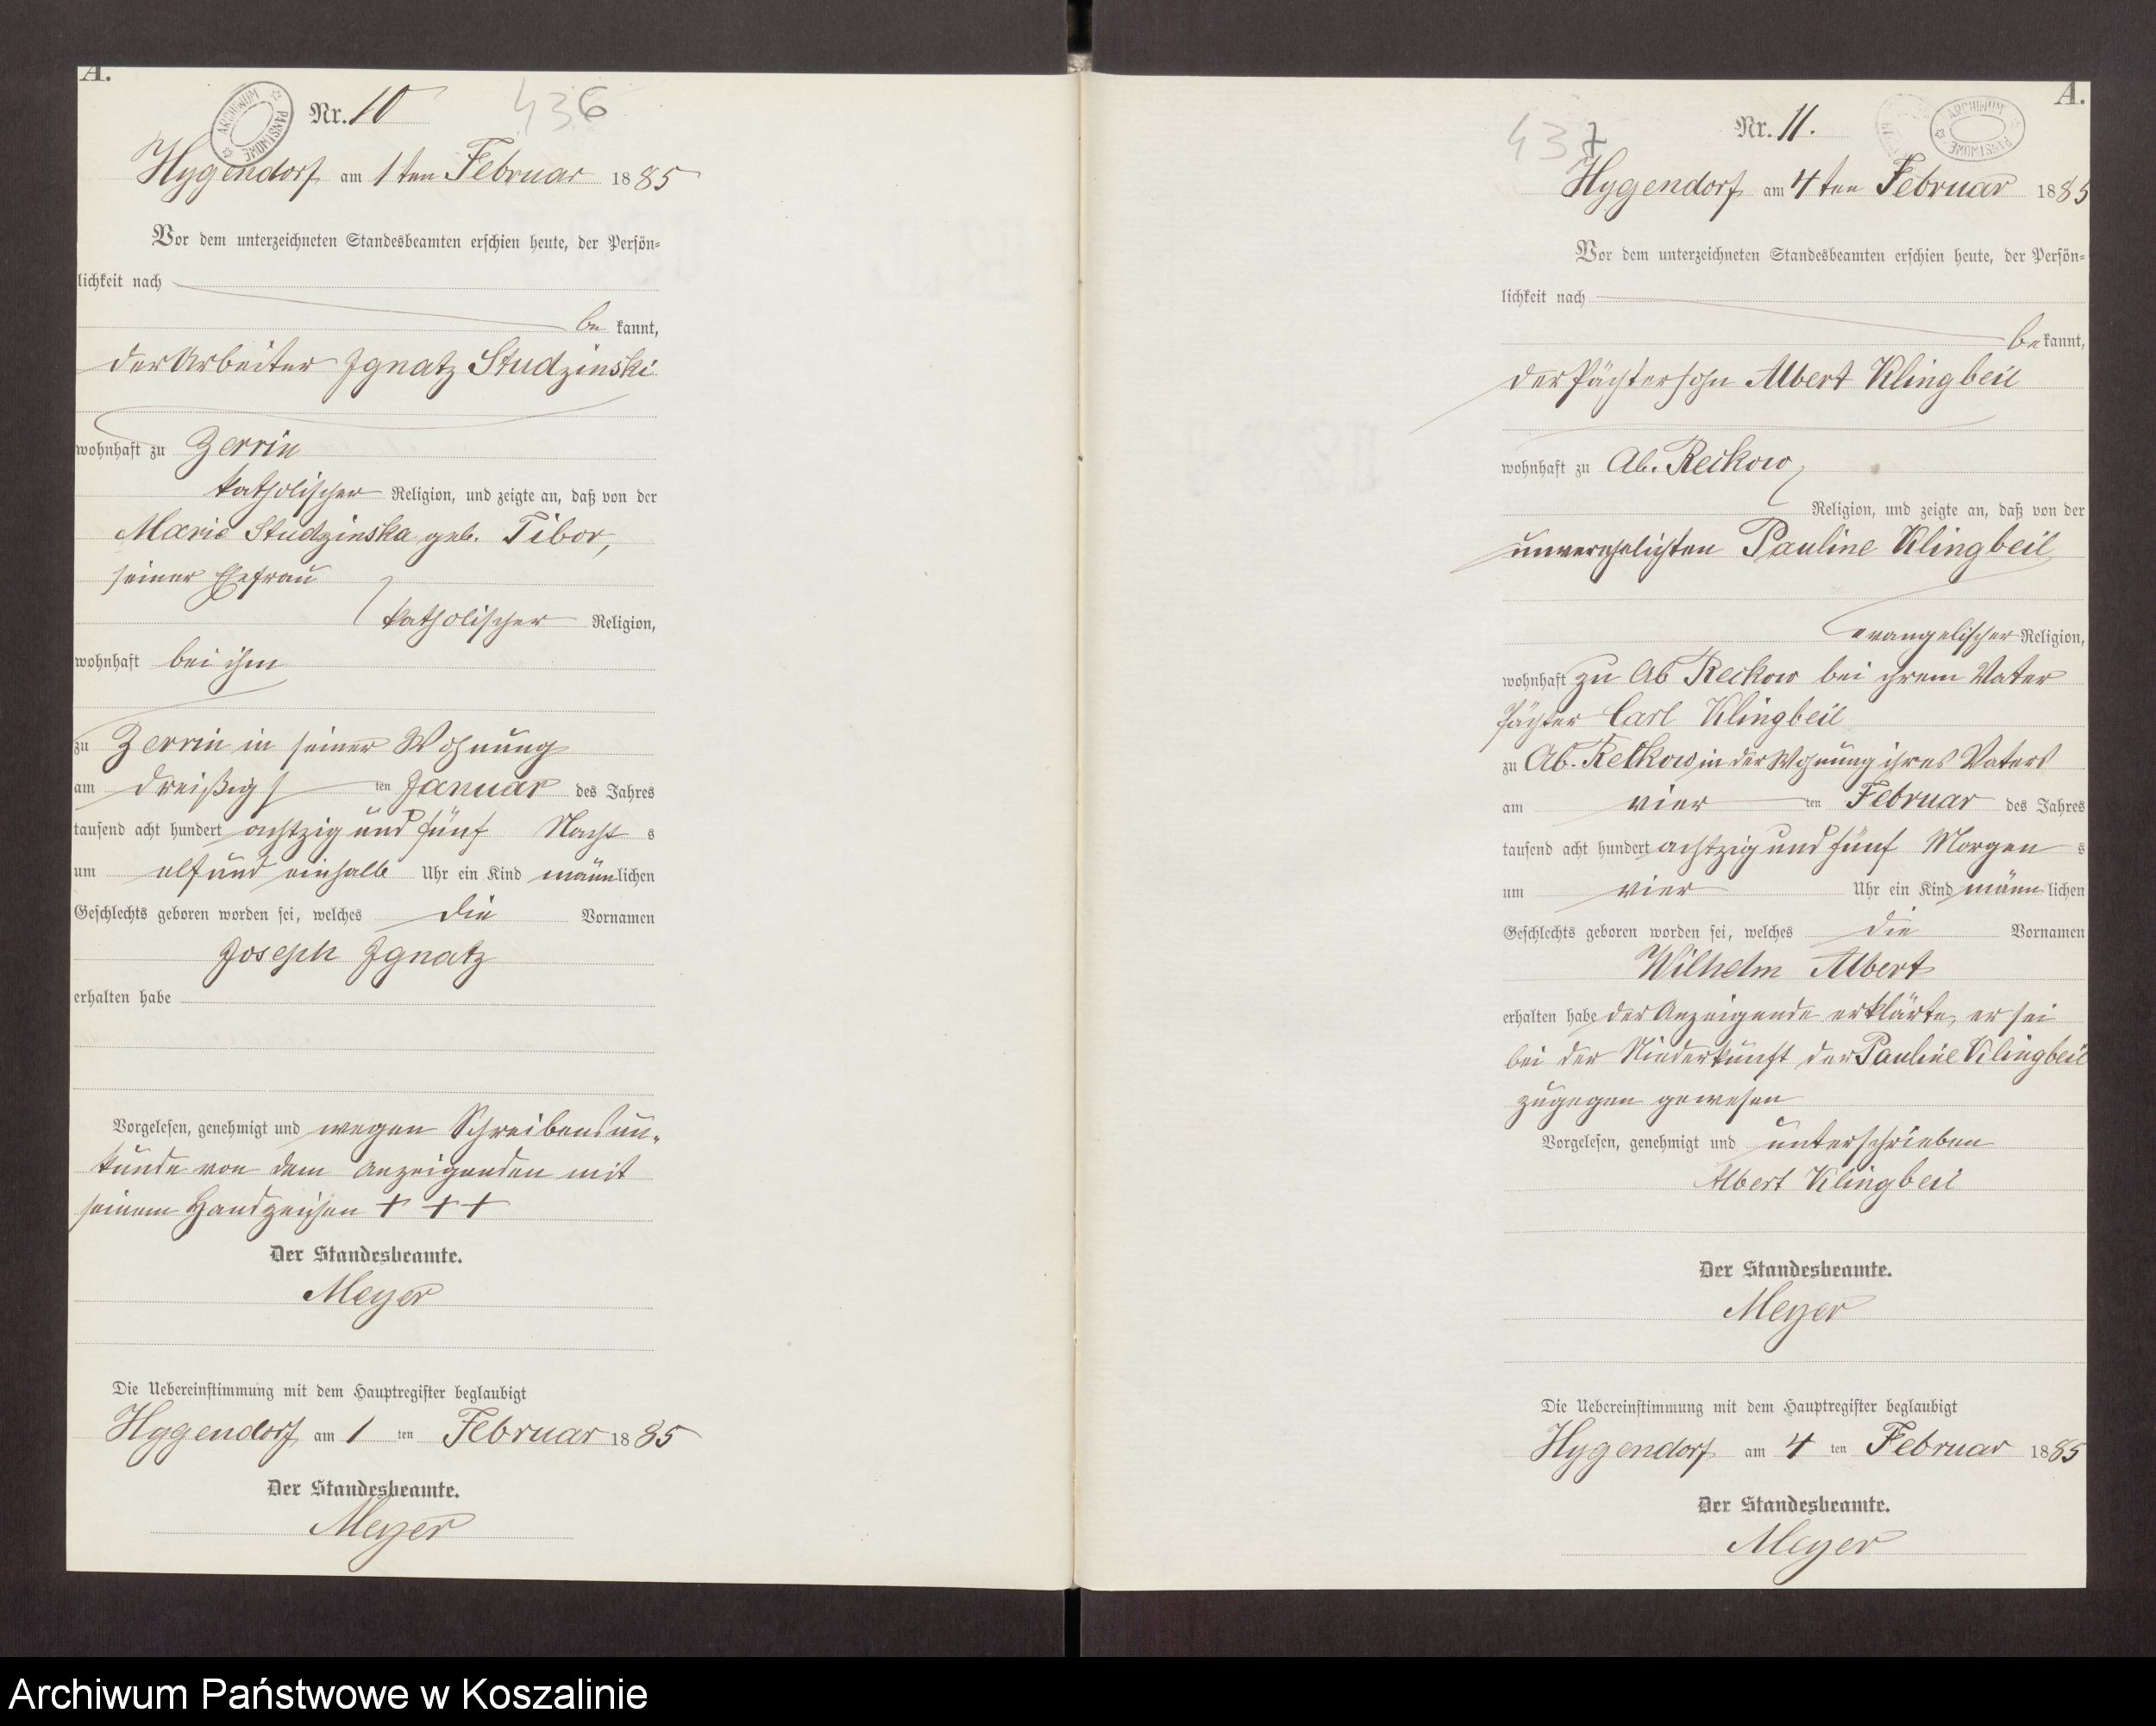 A.
ARCHIWUM PAŃSTWOWE
Nr. 10
436
Hygendorf am 1ten Februar 1885
Vor dem unterzeichneten Standesbeamten erschien heute, der Persön-
lichkeit nach
be kannt,
der Arbeiter Ignatz Studzinski
wohnhaft zu Zerrin
katholischer Religion, und zeigte an, daß von der
Marie Studzinska geb. Tibor,
seiner Ehefrau
katholischer Religion,
wohnhaft bei ihm
zu Zerrin in seiner Wohnung
am dreißigs ten Januar des Jahres
tausend acht hundert achtzig und fünf Nacht s
um elf und einhalb Uhr ein Kind männlichen
Geschlechts geboren worden sei, welches die Vornamen
Joseph Ignatz
erhalten habe
Vorgelesen, genehmigt und wegen Schreibensun-
kunde von dem Anzeigenden mit
seinem Handzeichen + + +
Der Standesbeamte.
Meyer
Die Uebereinstimmung mit dem Hauptregister beglaubigt
Hygendorf am 1 ten Februar 1885
Der Standesbeamte.
Meyer
A.
437
Nr. 11.
ARCHIWUM PAŃSTWOWE
Hygendorf am 4ten Februar 1885
Vor dem unterzeichneten Standesbeamten erschien heute, der Persön-
lichkeit nach
bekannt,
der Pächtersohn Albert Klingbeil
wohnhaft zu Ab. Reckow,
Religion, und zeigte an, daß von der
unverehelichten Pauline Klingbeil
evangelischer Religion,
wohnhaft zu Ab Reckow bei ihrem Vater
Pächter Carl Klingbeil
zu Ab. Reckow in der Wohnung ihres Vaters
am vier ten Februar des Jahres
tausend acht hundert achtzig und fünf Morgen s
um vier Uhr ein Kind männ lichen
Geschlechts geboren worden sei, welches die Vornamen
Wilhelm Albert
erhalten habe der Anzeigende erklärte, er sei
bei der Niederkunft der Pauline Klingbeil
zugegen gewesen
Vorgelesen, genehmigt und unterschrieben
Albert Klingbeil
Der Standesbeamte.
Meyer
Die Uebereinstimmung mit dem Hauptregister beglaubigt
Hygendorf am 4 ten Februar 1885
Der Standesbeamte.
Meyer
Archiwum Państwowe w Koszalinie